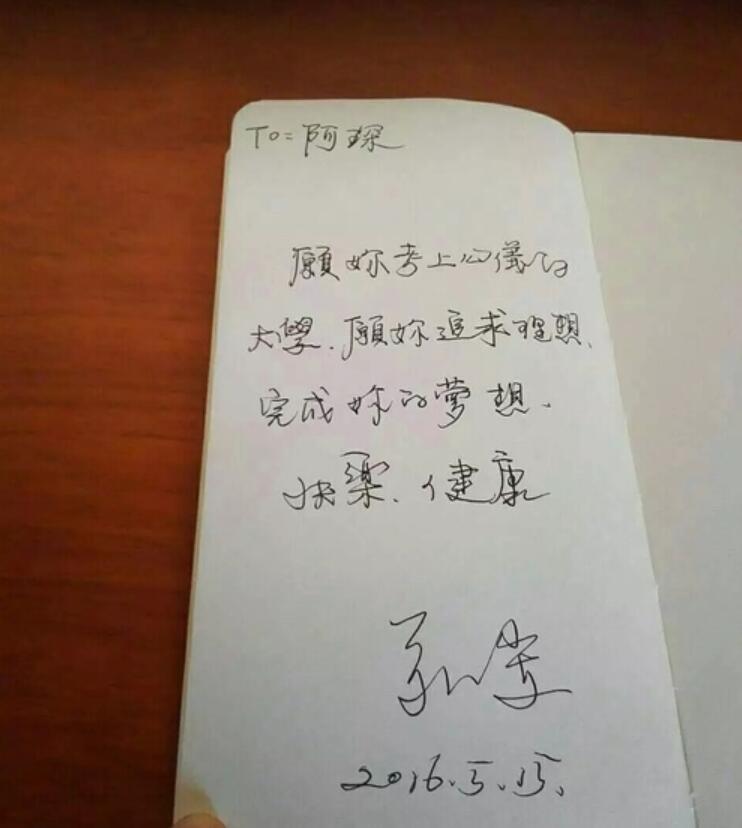 To=阿琛
願妳考上心儀的
大學.願妳追求理想.
完成妳的夢想.
快樂.健康
2016.5.15.